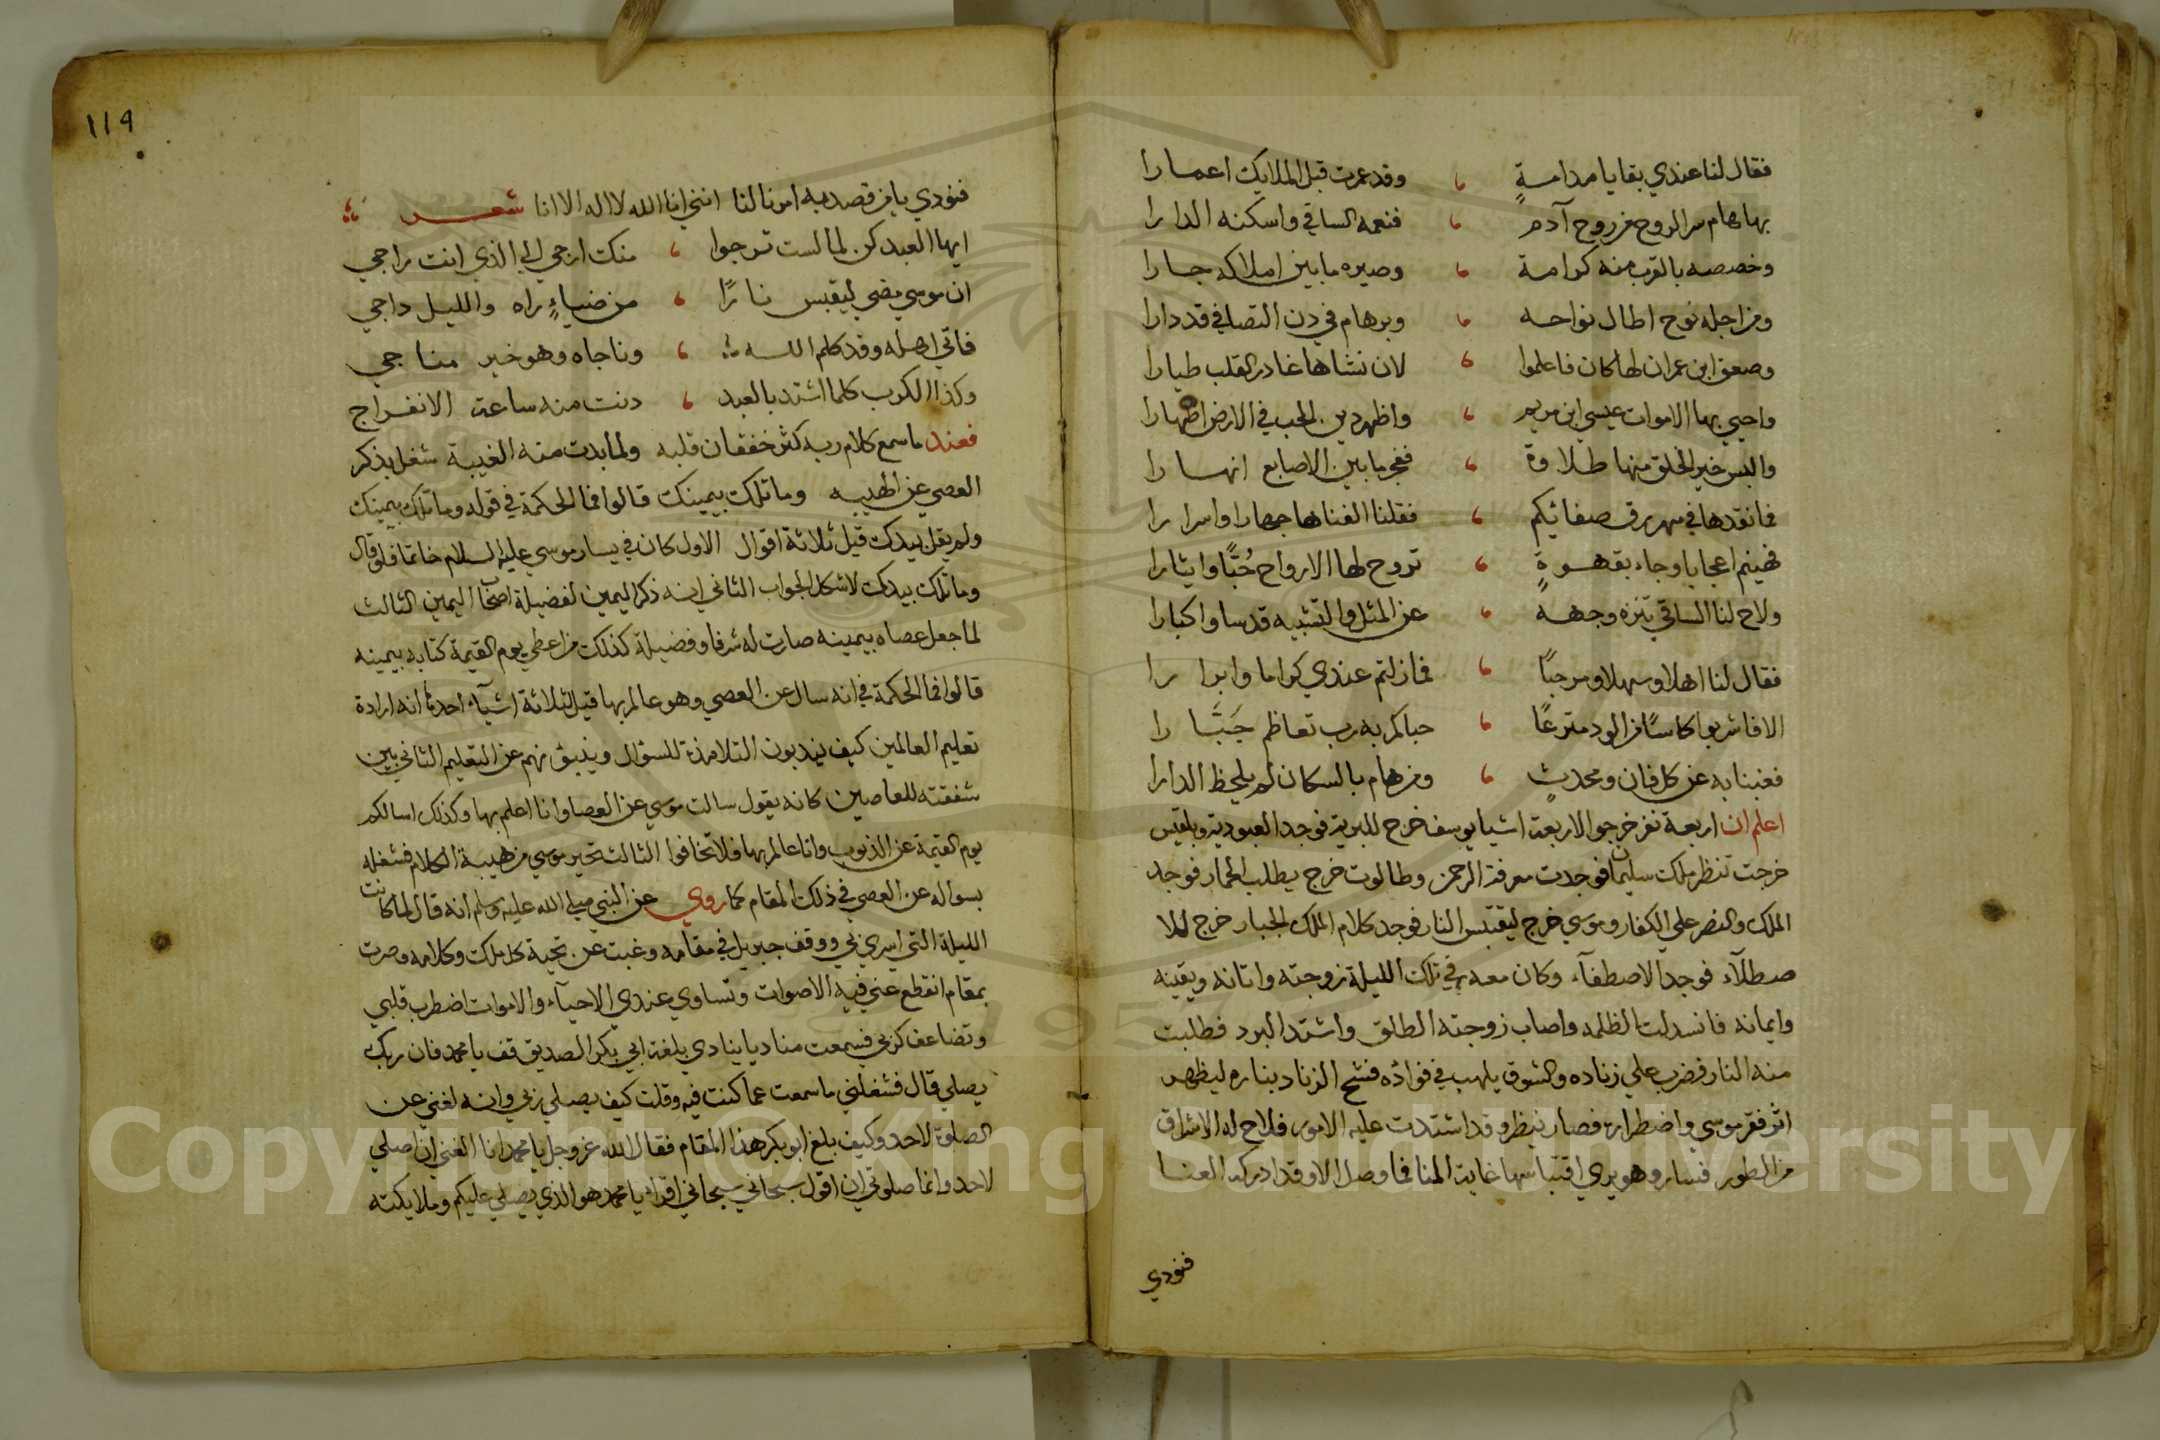 فقال لنا عندي بقايا مدامةٍ ، وقد عمرت قبل الملايك اعمارا
بها هام سر الروح من روح آدم ، فنعمه الساقي واسكنه الدارا
وخصصه بالقرب منه كرامة ، وصيره ما بين املاكه جارا
ومن اجله نوح اطال نواحه ، وبرهام في دن التصافي قد دارا
وصعق ابن عمران لها كان فاعلموا ، لان نشاها غادر القلب طيارا
واحيي بها الاموات عيسي ابن مريم ، واظهر دين الحب في الارض اظهارا
والبس خير الخلق منها طلاوة ، ففجر ما بين الاصابع انهارا
فانقدها في مهرق صفائيكم ، فقلنا الفناها جهارا واسرارا
فهينم اعجابا وجاء بقهوةٍ ، تروح لها الارواح حُبًّا وايثارا
ولاح لنا الساقي تنزه وجهه ، عن المثل والتشبيه قدسا واكبارا
فقال لنا اهلا وسهلا ومرحبًا ، فما زلتم عندي كراما وابرارا
الا فاشربوا كاسًا من الود مترعًا ، حباكم به رب تعاظم جَبَّارا
فغبنا به عن كل فان ومحدثٍ ، ومن هام بالسكان لم يلحظ الدارا
اعلم ان اربعة نفر خرجوا لاربعة اشيا يوسف خرج للبرية فوجد العبودية وبلقيس
خرجت تنظر ملك سليمان فوجدت معرفة الرحمن وطالوت خرج يطلب الحمار فوجد
الملك والنصر علي الكفار وموسي خرج ليقتبس النار فوجد كلام الملك الجبار خرج للا
صطلآء فوجد الاصطفآء وكان معه في تلك الليلة زوجته واتانه ويقينه
وايمانه فانسدلت الظلمه واصاب زوجته الطلق واشتد البرد فطلبت
منه النار فضرب علي زناده والشوق يلهب في فوائده فشح الزناد بناره ليظهر
اثر فقر موسي واضطراره فصار ينظر وقد اشتدت عليه الامور فلاح له الاشراق
من الطور فسار وهو يري اقتباسها غاية المنا فما وصل الا وقد ادركه العنا
فنودي
١١٩
فنودي يا من قصد به امرنا لنا انني انا الله لا اله الا انا شعر
ايها العبد كن لما لست ترجوا ، منك ارجي الي الذي انت راجي
ان موسي مضي ليقبس نارًا ، من ضياءٍ راه والليل داجي
فاتي اهله وقد كلم الله ، وناجاه وهو خير مناجي
وكذا الكرب كلما اشتد بالعبد ، دنت منه ساعة الانفراج
فعند ما سمع كلام ربه كثر خفقان قلبه ولما بدت منه الغيبة شغل بذكر
العصي عن الهيبه وما تلك بيمينك قالوا فما الحكمة في قوله وما تلك بيمينك
ولم يقل بيدك قيل ثلاثة اقوال الاول كان في يسار موسي عليه السلام خاتما فلو قال
وما تلك بيدك لاشكل الجواب الثاني انه ذكر اليمين لفضيلة اصحاب اليمين الثالث
لما جعل عصاه بيمينه صارت له شرفا وفضيلة كذلك من اعطي يوم القيمة كتابه بيمينه
قالوا فما الحكمة في انه سال عن العصي وهو عالم بها قيل لثلاثة اشيآء احدها انه ارادة
تعليم العالمين كيف يندبون التلامذة للسؤال وينبؤنهم عن التعليم الثاني بين
شفقته للعاصين كانه يقول سالت موسي عن العصا وانا اعلم بها وكذلك اسالكم
يوم القيمة عن الذنوب وانا عالم بها فلا تخافوا الثالث تحير موسي من هيبة الكلام فشغله
بسواله عن العصي في ذلك المقام كما روي عن النبي صلي الله عليه وسلم انه قال لما كانت
الليلة التي اسري بي ووقف جبريل في مقامه وغبت عن تحية كل ملك وكلامه وصرت
بمقام انقطع عني فيه الاصوات وتساوي عندي الاحيآء والاموات اضطرب قلبي
وتضاعف كربي فسمعت مناديا ينادي بلغة ابي بكر الصديق قف يا محمد فان ربك
يصلي قال فشغلني ما سمعت عما كنت فيه وقلت كيف يصلي ربي وانه لغني عن
الصلوة لاحد وكيف بلغ ابو بكر هذا المقام فقال الله عز وجل يا محمد انا الغني ان اصلي
لاحد وانما صلوتي ان اقول سبحاني سبحاني اقراء يا محمد هو الذي يصلي عليكم وملايكته
Copyright © King Saud University